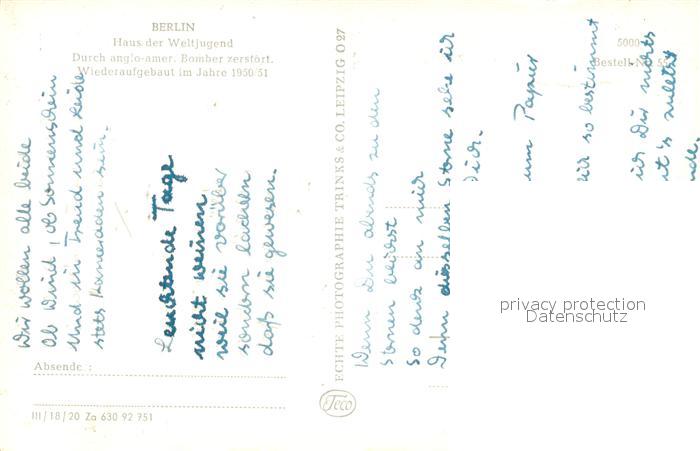 BERLIN
Haus der Weltjugend
Durch anglo-amer. Bomber zerstört.
Wiederaufgebaut im Jahre 1950/51
Wir wollen alle beide
Ob Wind, ob Sonnenschein
Und in Freud und Leide
stets Kameraden sein.
Leuchtende Tage
nicht weinen
weil sie vorüber
sondern lachen
daß sie gewesen.
Absender:
III/18/20 Za 630 92 751
ECHTE PHOTOGRAPHIE TRINKS & CO. LEIPZIG O 27
Teco
Wenn Du abends zu den
Sternen
So denk an mir
Denn
Dich.
5000
Bestell-Nr.
um Papier
wir so bestimmt
ich Dir nichts
ist's zuletzt
privacy protection
Datenschutz